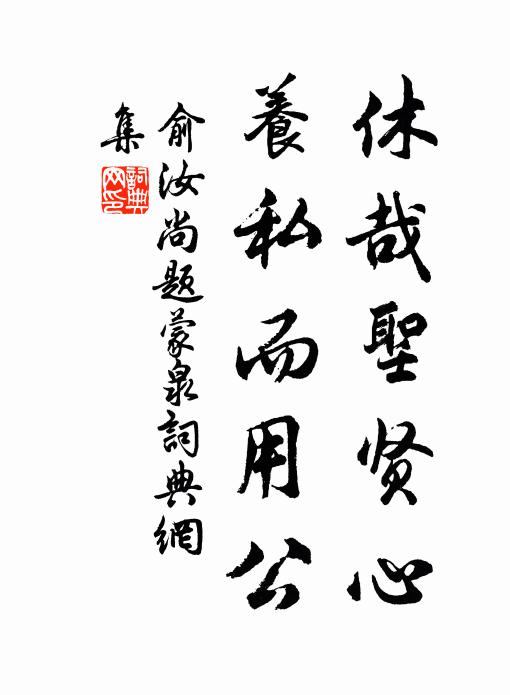 休哉聖贤心
養私而用公
俞汝尚题蒙泉詞典網
集
詞典
网印